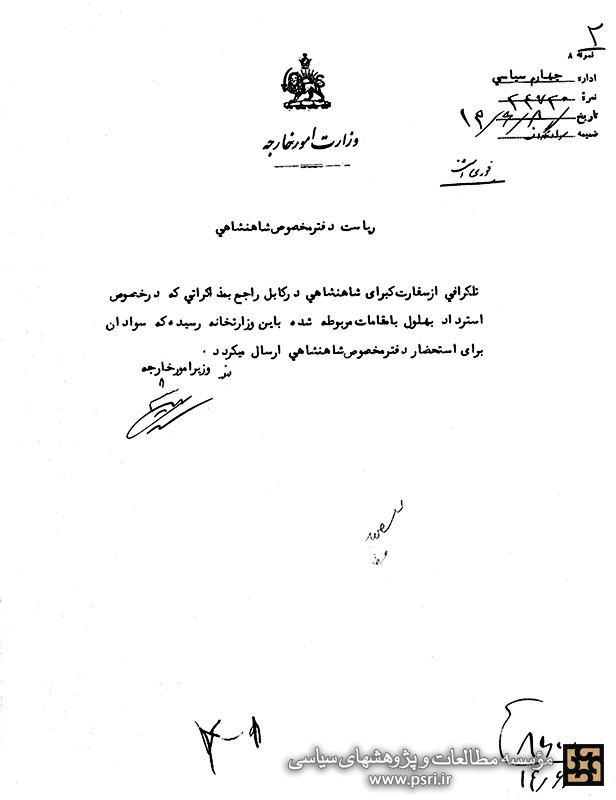 ۲
نمره ۸
اداره چهارم سیاسی
نمره ۲۴۷۲۰
تاریخ ۱۴/۶/۸
ضمیمه
وزارت امور خارجه
فوری است
ریاست دفتر مخصوص شاهنشاهی
تلگرافی از سفارت کبرای شاهنشاهی در کابل راجع بمذاکراتی که در خصوص
استرداد بهلول بامقامات مربوطه شده باین وزارتخانه رسیده که سواد ان
برای استحضار دفتر مخصوص شاهنشاهی ارسال میگردد ۰
وزیر امور خارجه
مؤسسه مطالعات و پژوهشهای سیاسی
www.psri.ir